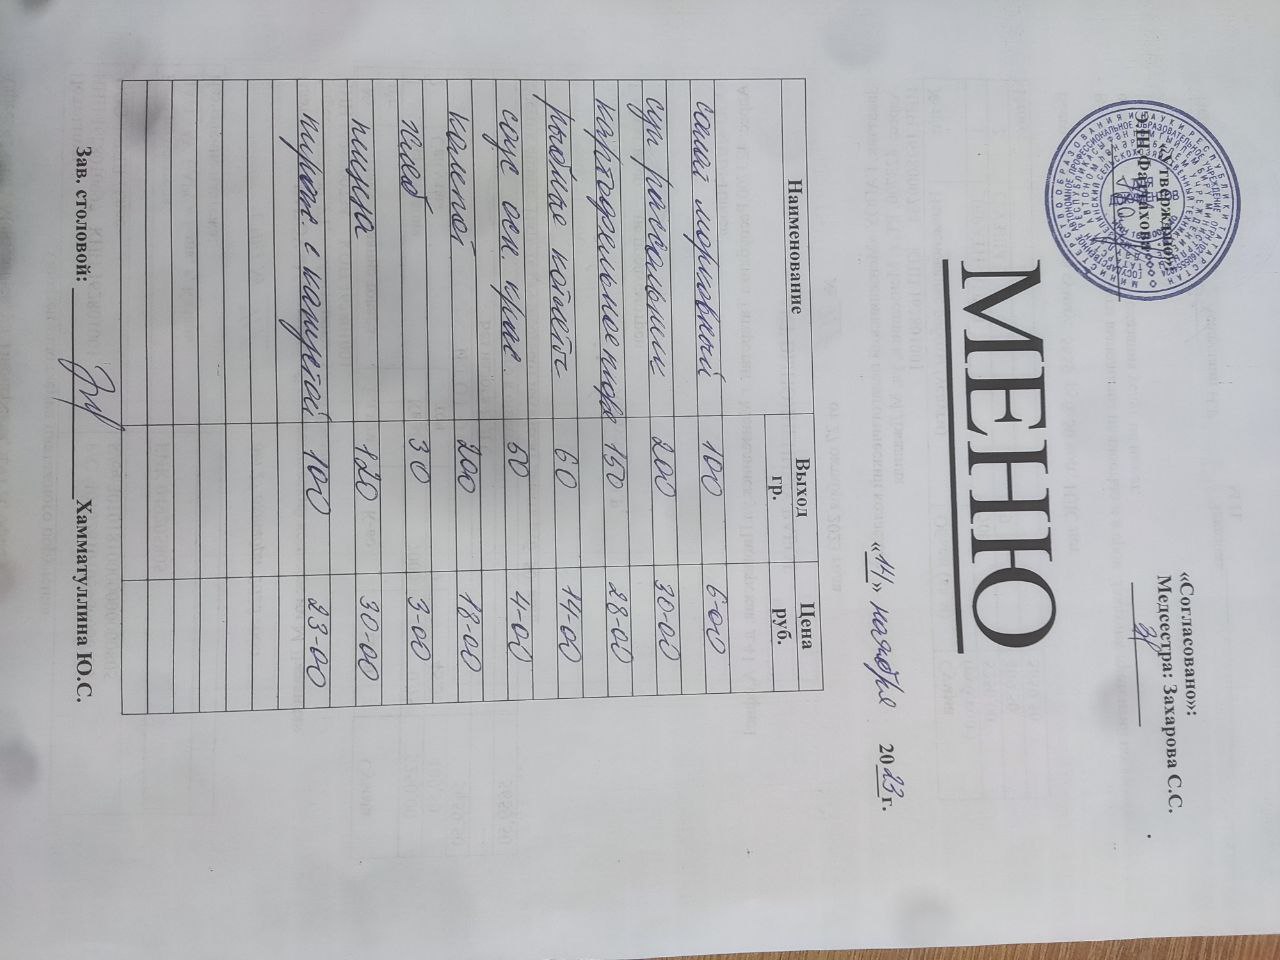 «Утверждаю»
Э.Н.Фаттахова
«Согласовано»:
Медсестра: Захарова С.С.
МЕНЮ
«14» ноября 2023 г.
Наименование Выход гр. Цена руб.
салат морковный 100 6-00
суп рассольник 200 30-00
картофельное пюре 150 28-00
рыбные котлеты 60 14-00
соус осн. крас. 50 4-00
компот 200 18-00
хлеб 30 3-00
пицца 120 30-00
пирож. с капустой 100 23-00
Зав. столовой: Хамматуллина Ю.С.